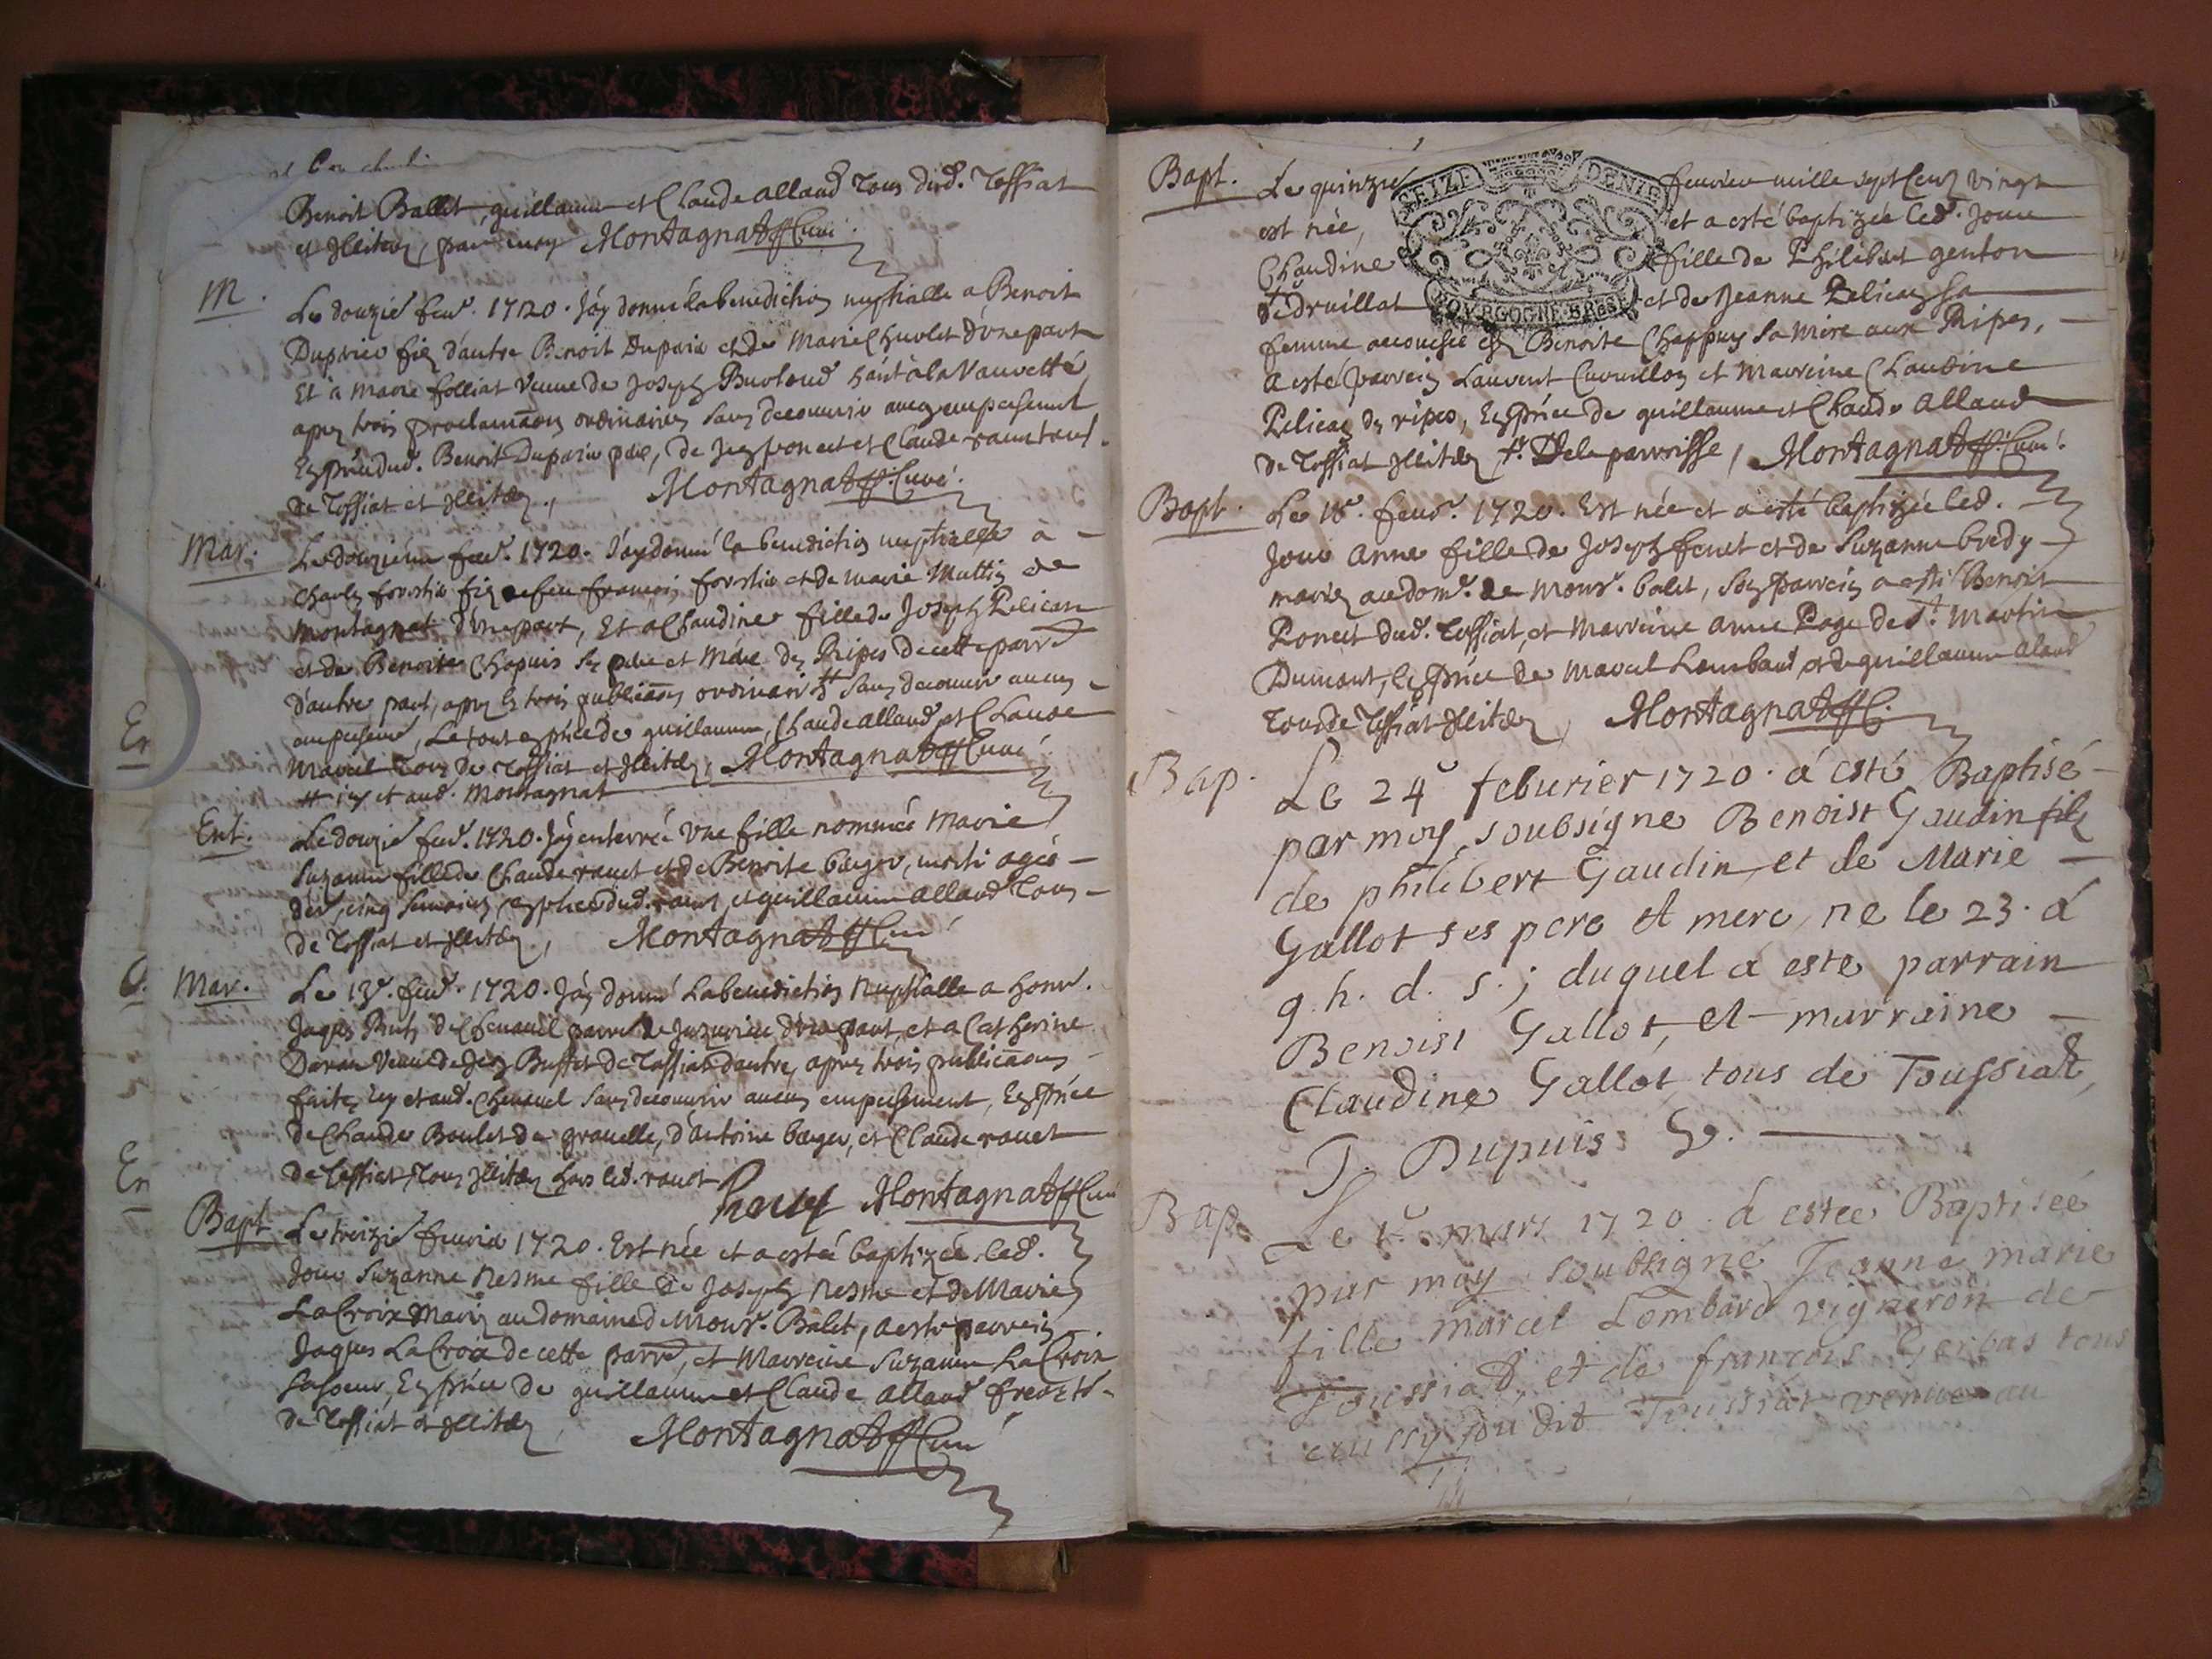 Benoit Ballet, guillaume et Claude allaud tous dud. Tossiat
et Illitéz, par moy Montagnat Curé.
M.
Le douzie feur. 1720. J'ay donné la benediction nuptialle a Benoit
Dupuis filz d'autre Benoit Dupuis et de Marie d'une part
Et à Marie folliat veuue de Joseph à la Vauvette
apres trois proclamaons ordinaires sans decouurir aucun empeschement
En pñce dud. Benoit Dupuis pere, de Jean poncet et Claude
de Tossiat et Illitéz, Montagnat Curé.
Mar.
Le douzieme feur. 1720. J'ay donné la benediction nuptialle à
Charles forestier filz de feu françois forestier et de marie Muttin de
Montagnat d'une part, Et a Claudine fille de Joseph Pelican
et de Benoite Chapuis ses pere et Mere des Ripes de cette parre
d'autre part, apres les trois publicaons ordinaires # sans decouurir aucun
empeschemt, Le tout en pñce de guillaume, Claude allaud, et Claude
Marcil tous de Tossiat et Illitéz, Montagnat Curé
# icy et aud. Montagnat
Ent.
Le douzie feur. 1720. J'ay enterrée une fille nommée Marie
Suzanne fille de Claude rauet et de Benoite berger, morte agée
de cinq semaines en pñce dud. rauet, et guillaume allaud tous
de Tossiat et Illitéz, Montagnat Curé
Mar.
Le 13e. feur. 1720. J'ay donné La benediction Nuptialle a honr.
Jaques de Cheneuil parre de Juzurieu d'une part, et a Catherine
veuue de Jean Buffet de Tossiat d'autre, apres trois publicaons
faites icy et aud. Cheneuel sans decouurir aucun empeschement, En pñce
de Claude Boulet de grauelle, d'antoine berger, et Claude rauet
de Tossiat, tous Illitéz hors led. rauet
Rauet Montagnat Curé
Bapt.
Le treizie feurier 1720. Est née et a estée baptizée led.
jour Suzanne Nesme fille de Joseph Nesme et de Marie
La Croix Mariez au domaine de Monsr. Balet, a esté parrein
Jaques La Croix de cette parre, et Marreine Suzanne La Croix
sa soeur, En pñce de guillaume et Claude allaud freres
de Tossiat et Illitéz, Montagnat Curé
Bapt.
Le quinzie feurier mille sept cens vingt
est née, et a esté baptizée led. Jour
Claudine fille de Philibert genton
de druillat et de Jeanne Pelican sa
femme accouchée chez Benoite Chappuys sa Mere aux Ripes,
a esté parrein Laurent Curuillon et Marreine Claudine
Pelican des ripes, En pñce de guillaume et Claude allaud
de Tossiat Illitéz De la parroisse, Montagnat Curé.
SEIZE DENIE
BOVRGOGNE BRESS
Bapt.
Le 18e. feur. 1720. Est née et a esté baptizée led.
Jour anne fille de Joseph feret et de Suzanne bredy
mariez au dome. de Monsr. balet, son parrein a esté Benoit
Poncet dud. Tossiat, et Marreine anne Page de St. Martin
Dumont, En pñce de Marcel Lombard, et de guillaume alaud
tous de Tossiat Illitéz, Montagnat C.
Bap.
Le 24e feburier 1720. á esté Baptisé
par moy soubsigne Benoist Gaudin filz
de philibert Gaudin, et de Marie
Gallot ses pere et mere, ne le 23. d
q. h. d. s.; duquel á este parrain
Benoist Gallot, et marraine
Claudine Gallot tous de Toussiat,
J. Dupuis
Bap.
Le 1er. mars 1720. á estee Baptisée
par moy soubsigné Jeanne marie
fille marcel Lombard vigneron de
Toussiat, et de françoise Gerbas tous
dit Toussiat venue au